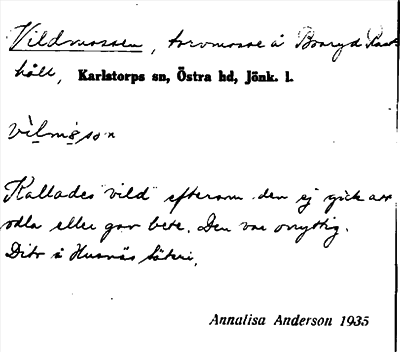 Vildmossen, torvmosse å Boaryd
håll, Karlstorps sn, Östra hd, Jönk. l.
vìlmɔ̀sən
Kallades "vild" eftersom den ej gick att
odla eller gav bete. Den var onyttig.
Ditr å Husnäs säteri.
Annalisa Anderson 1935